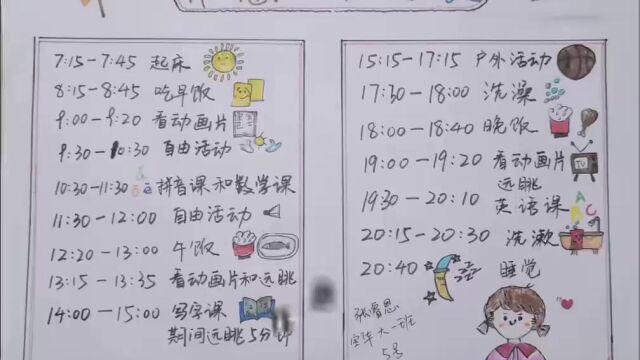 7:15-7:45 起床
8:15-8:45 吃早饭
9:00-9:20 看动画片
9:30-10:30 自由活动
10:30-11:30 拼音课和数学课
11:30-12:00 自由活动
12:20-13:00 午饭
13:15-13:35 看动画片和远眺
14:00-15:00 写字课
期间远眺5分钟
15:15-17:15 户外活动
17:30-18:00 洗澡
18:00-18:40 晚饭
19:00-19:20 看动画片
TV
远眺
19:30-20:10 英语课
A B C
20:15-20:30 洗漱
20:40 睡觉
大一班
5号